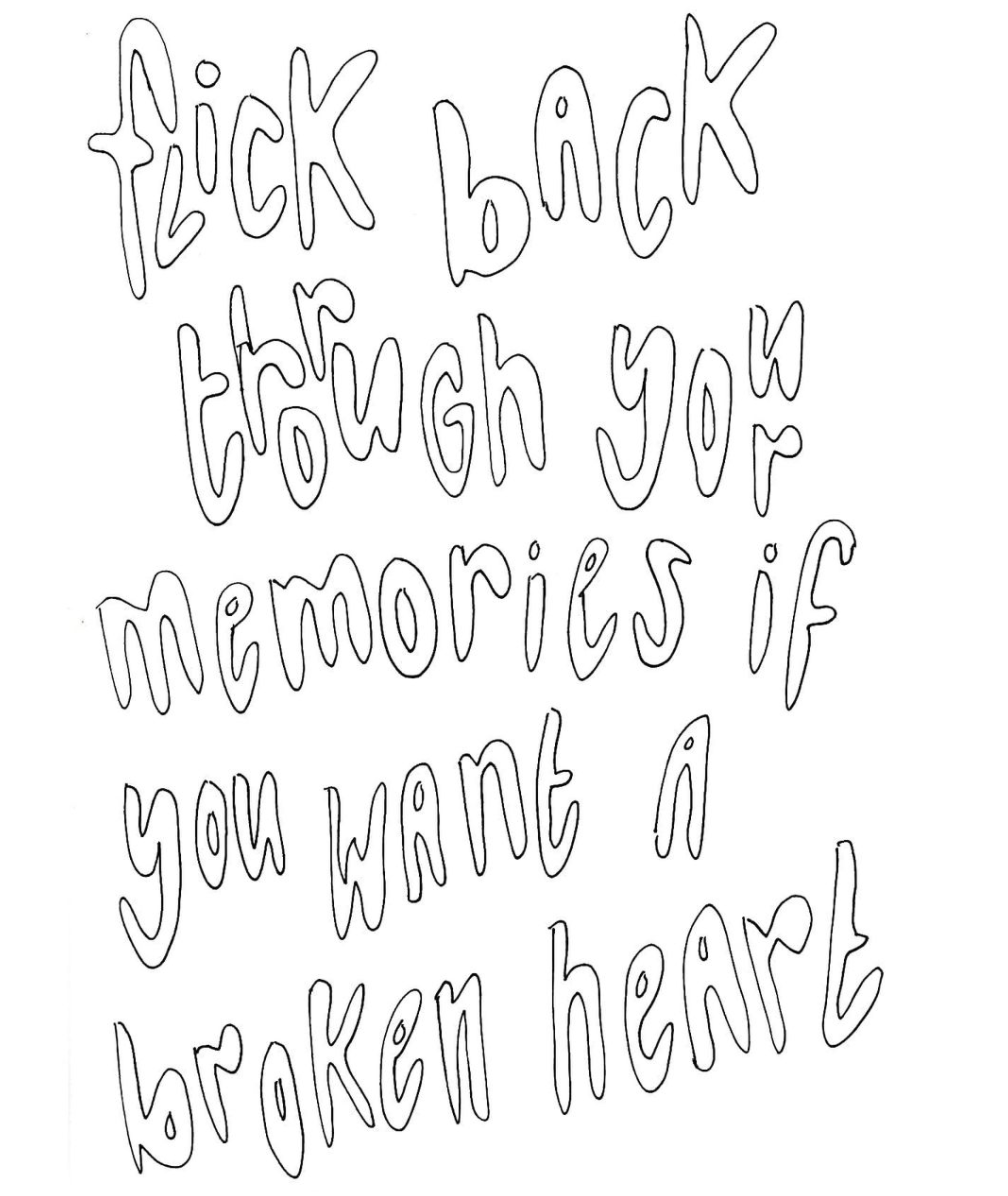 flick bAcK
throuGh your
memories if
you wAnt A
broken heArt